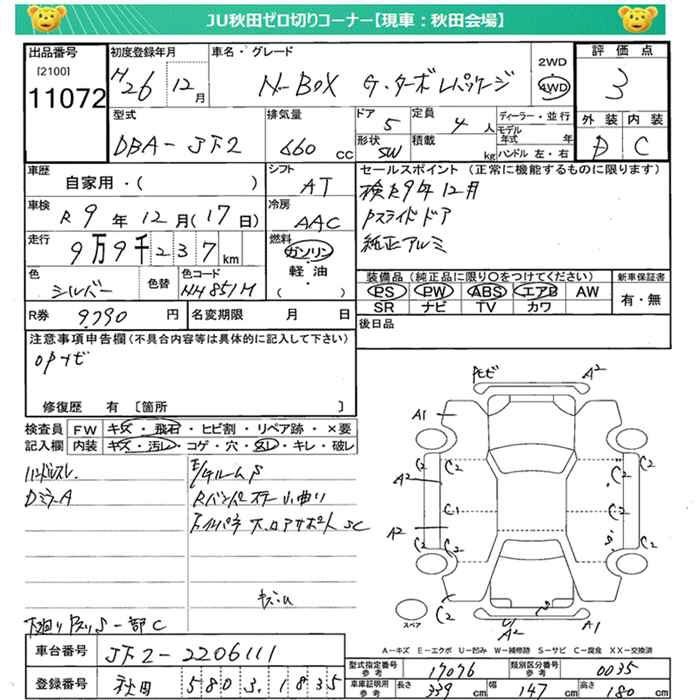 JU秋田ゼロ切りコーナー【現車：秋田会場】
出品番号 [2100] 11072
初度登録年月 H26 12月
車名・グレード N-BOX G・ターボLパッケージ
2WD 4WD
評価点 3
外装 D 内装 C
型式 DBA-JF2
排気量 660 cc
ドア 5 定員 4 人
形状 SW 積載 kg
ディーラー・並行
モデル年式 年
ハンドル 左・右
車歴 自家用・( )
シフト AT
車検 R 9年 12月(17日)
冷房 AAC
走行 9万9千237 km
燃料 ガソリン・軽油・( )
色 シルバー 色替
色コード NH851M
R券 9,790 円
名変期限 月 日
セールスポイント（正常に機能するものに限ります）
検R9年12月
Pスライドドア
純正アルミ
装備品（純正品に限り〇をつけてください）
PS PW ABS エアB AW
SR ナビ TV カワ
新車保証書 有・無
後日品
注意事項申告欄(不具合内容等は具体的に記入して下さい)
opナビ
修復歴 有 〔箇所 〕
検査員記入欄
FW キズ・飛石・ヒビ割・リペア跡・×要
内装 キズ・汚レ・コゲ・穴・スレ・キレ・破レ
ハンドルスレ
DミラーA
E/gルームS
Rバンパステー小曲り
キズ・U
下廻りS一部C
Pモゼ A2
A1
C2 C2 C2 C2
A2
C1 C1
A2
C2 C2 S C2
C2 S
U A2 A1
スペア
A－キズ E－エクボ U－凹み W－補修跡 S－サビ C－腐食 XX－交換済
車台番号 JF2-2206111
登録番号 秋田 580 す 1835
型式指定番号 17076 類別区分番号 0035
車庫証明用参考 長さ 339 cm 幅 147 cm 高さ 180 cm